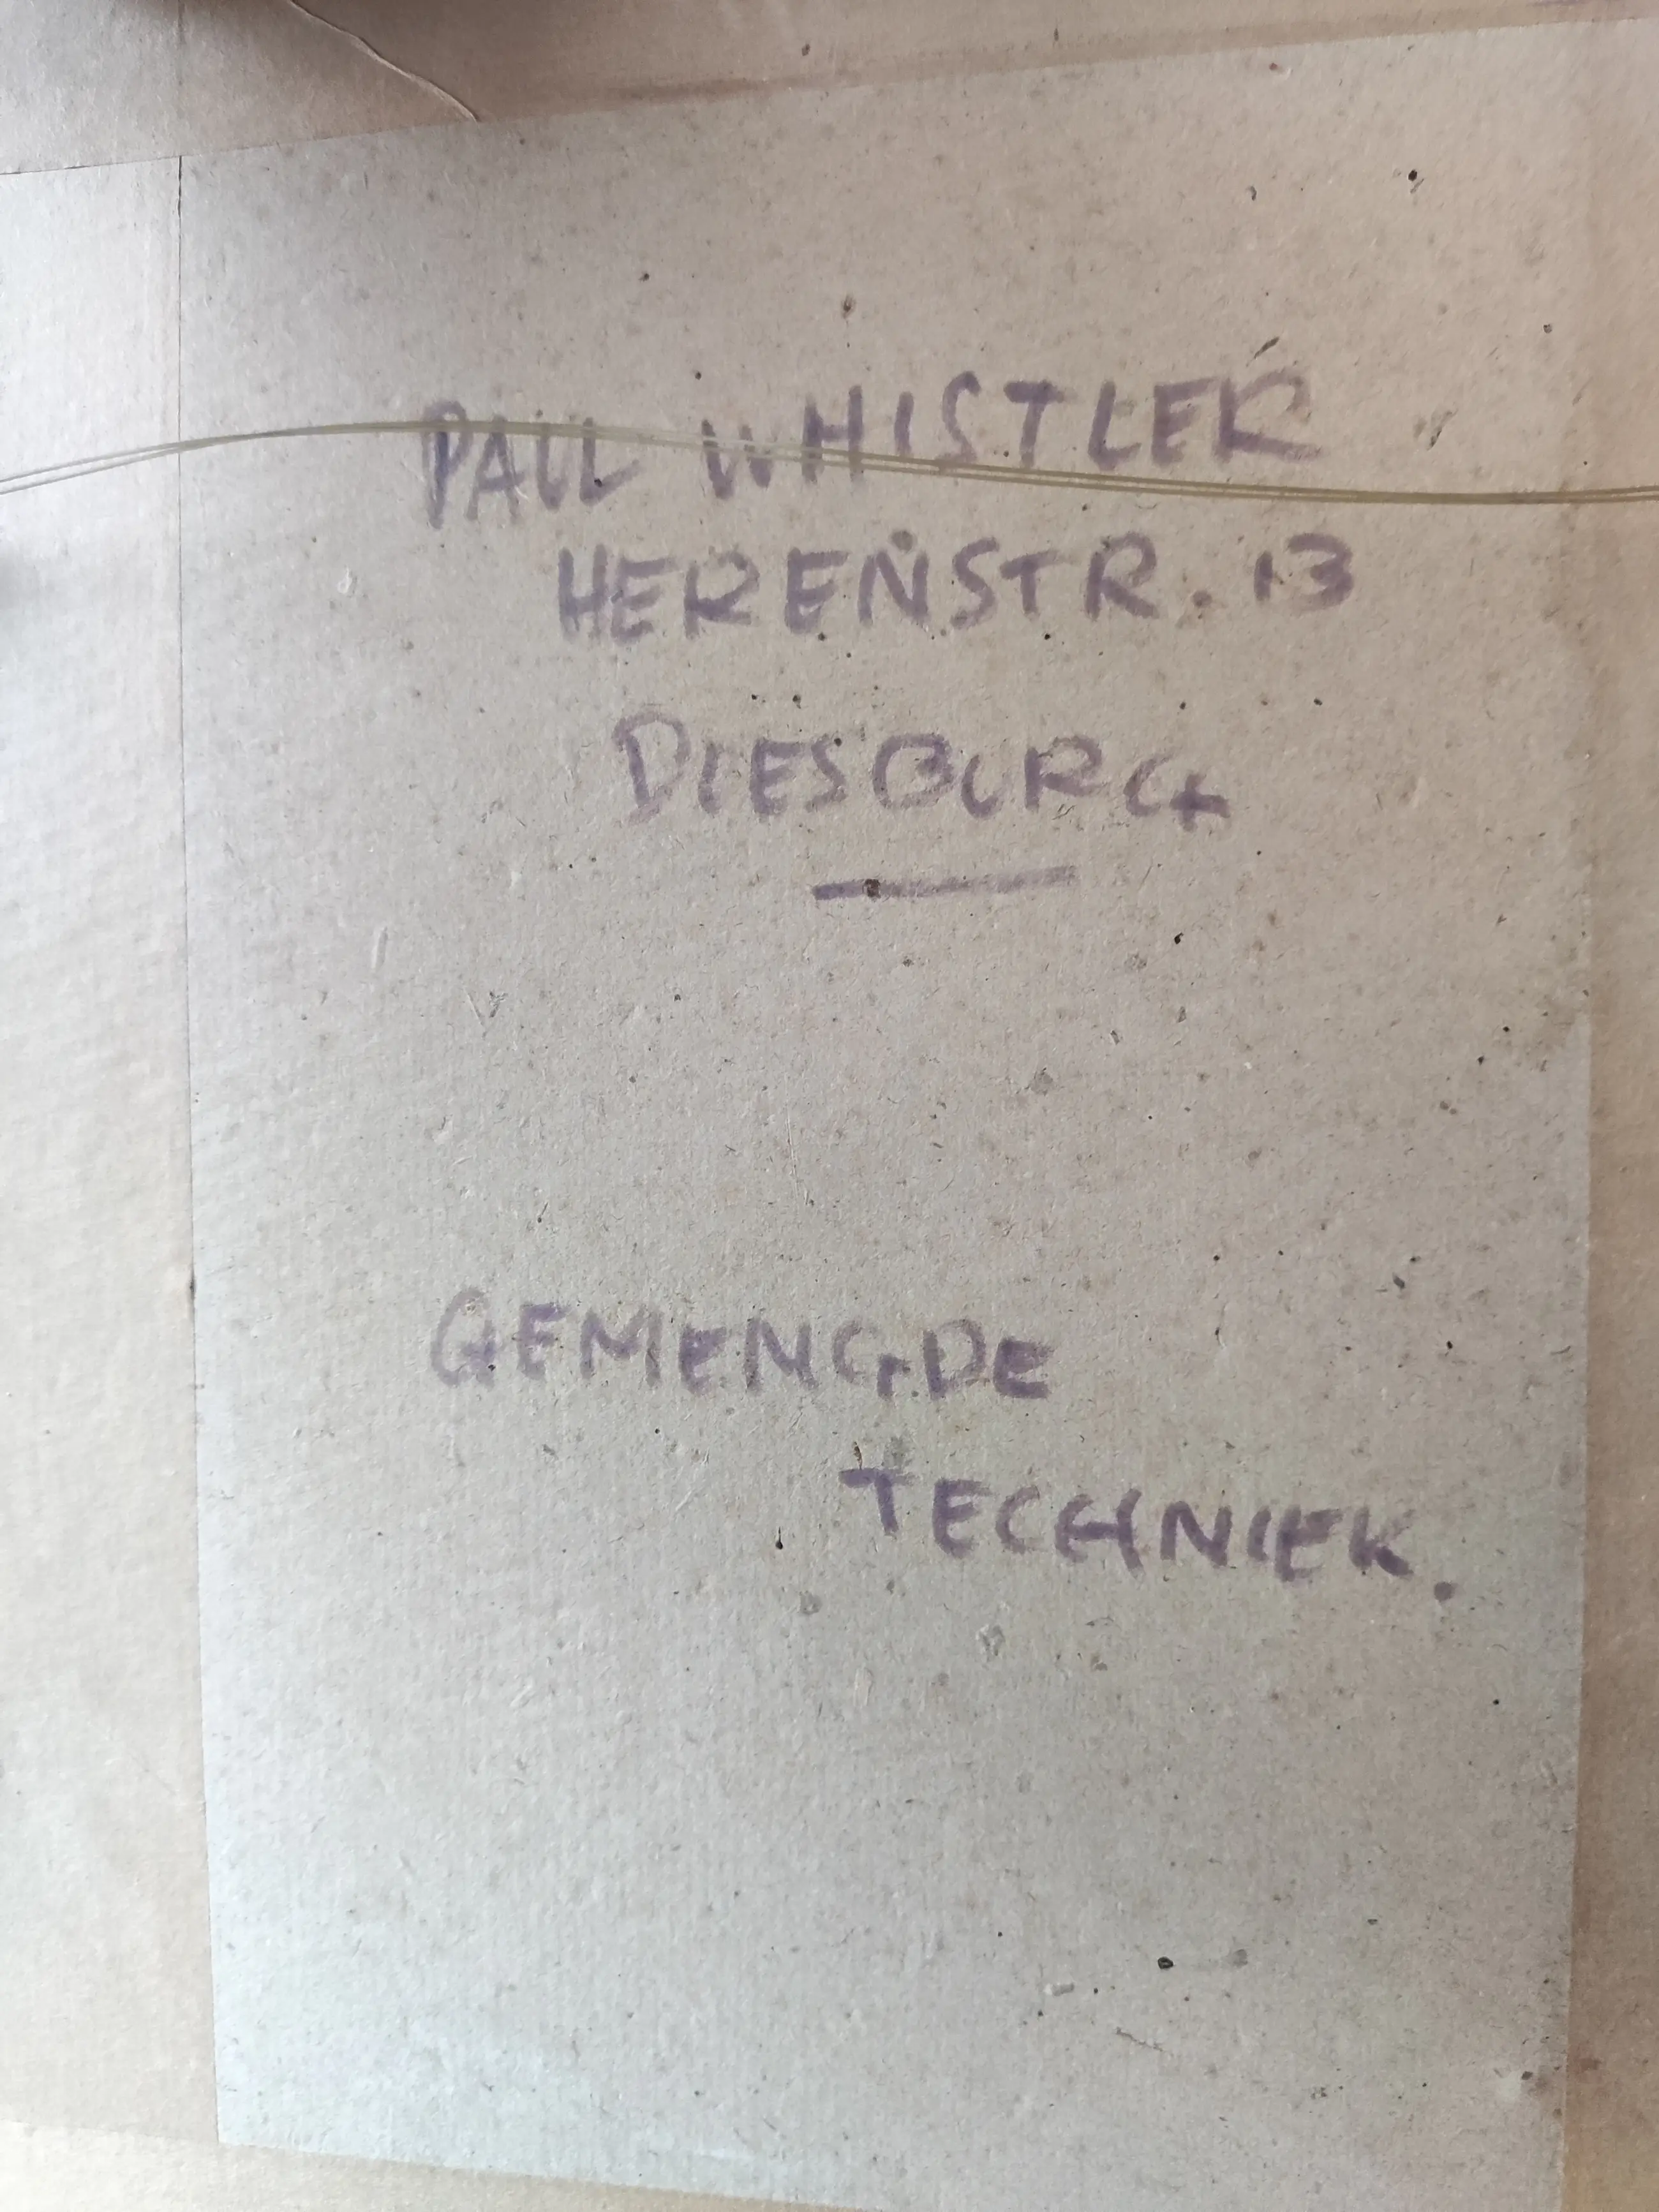 PAUL WHISTLER
HERENSTR. 13
DIESBURG
GEMENGDE
TECHNIEK.